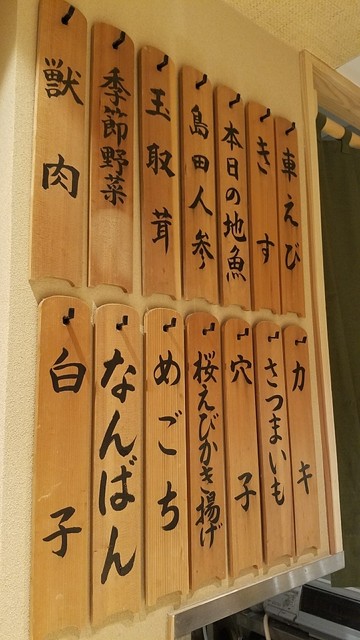 車えび
きす
本日の地魚
島田人参
玉取茸
季節野菜
獣肉
カキ
さつまいも
穴子
桜えびかき揚げ
めごち
なんばん
白子